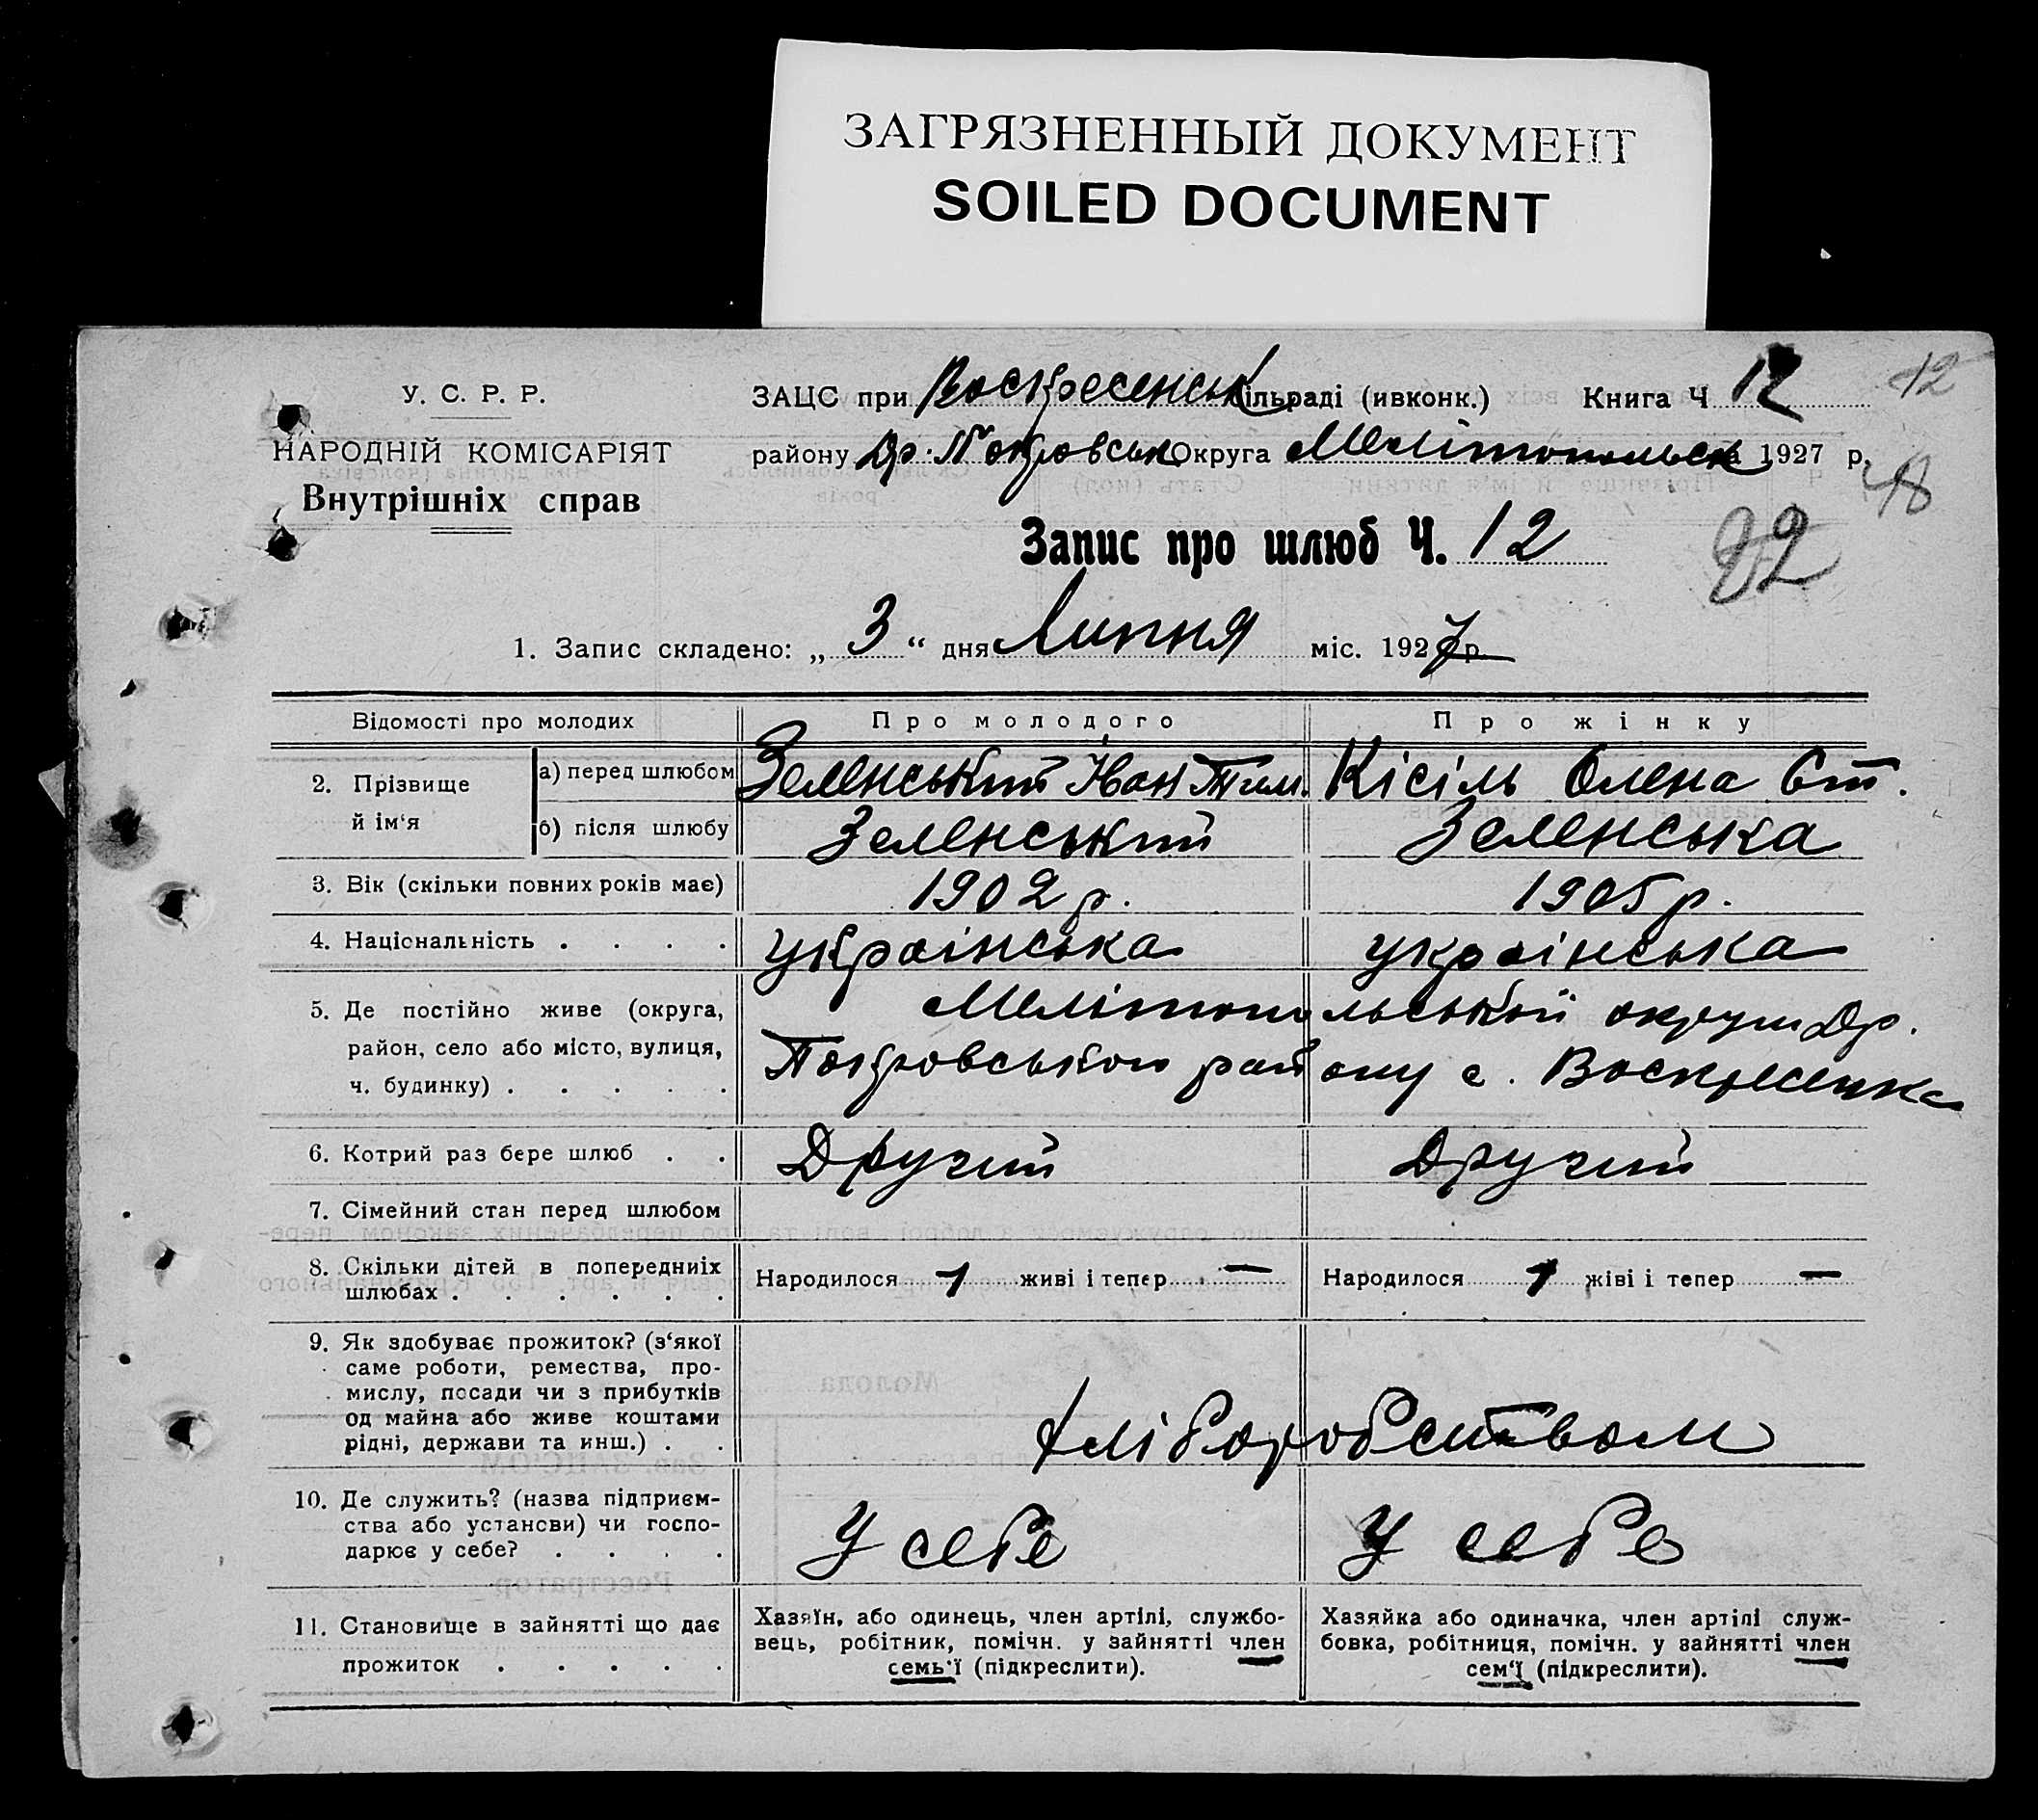 ЗАГРЯЗНЕННЫЙ ДОКУМЕНТ
SOILED DOCUMENT
У. С. Р. Р.
НАРОДНІЙ КОМІСАРІЯТ
Внутрішніх справ
ЗАЦС при Воскресенськ ільраді (ивконк.) Книга Ч 12 12
району Др. Покровськ Округа Мелітопольськ 1927 р. 48
Запис про шлюб Ч. 12
1. Запис складено: „ 3 “ дня Липня міс. 1927 р.
Відомості про молодих Про молодого Про жінку
2. Прізвище й ім‘я
а) перед шлюбом Зеленський Іван Тим. Кісіль Олена Ст.
б) після шлюбу Зеленський Зеленська
3. Вік (скільки повних років має) 1902 р. 1905 р.
4. Національність . . . . українська українська
5. Де постійно живе (округа,
район, село або місто, вулиця,
ч. будинку) . . . . .
Мелітопольської округи Др.
Покровського району с. Воскресенка
6. Котрий раз бере шлюб . . Другий Другий
7. Сімейний стан перед шлюбом
8. Скільки дітей в попередніх
шлюбах . . . . . .
Народилося 1 живі і тепер — Народилося 1 жіві і тепер —
9. Як здобуває прожиток? (з‘якої
саме роботи, ремества, про-
мислу, посади чи з прибутків
од майна або живе коштами
рідні, держави та инш.) . .
хліборобством
10. Де служить? (назва підприєм-
ства або установи) чи госпо-
дарює у себе? . . . .
У себе У себе
11. Становище в зайнятті що дає
прожиток . . . . .
Хазяїн, або одинець, член артілі, службо-
вець, робітник, помічн. у зайнятті член
семь‘ї (підкреслити).
Хазяйка або одиначка, член артілі служ-
бовка, робітниця, помічн. у зайнятті член
сем‘ї (підкреслити).